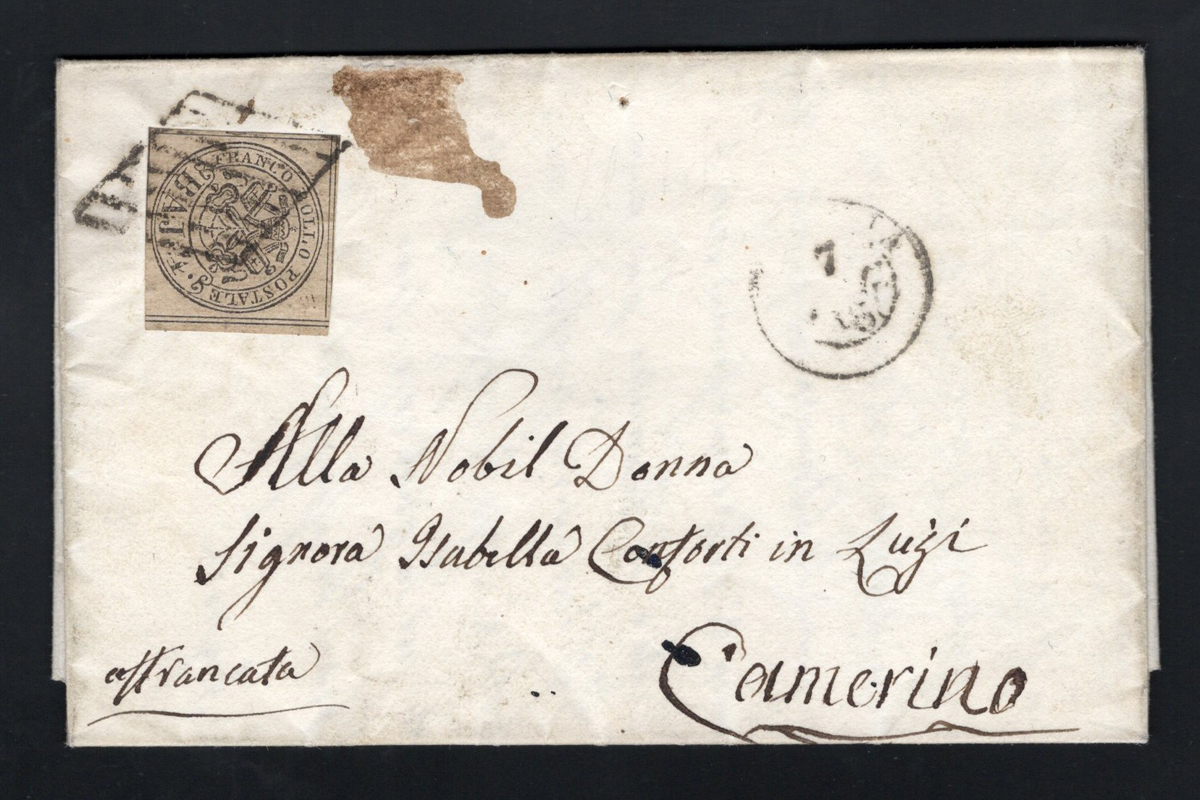 FRANCO BOLLO POSTALE
7
Alla Nobil Donna
Signora Isabella Conforti in Luzi
affrancata
Camerino